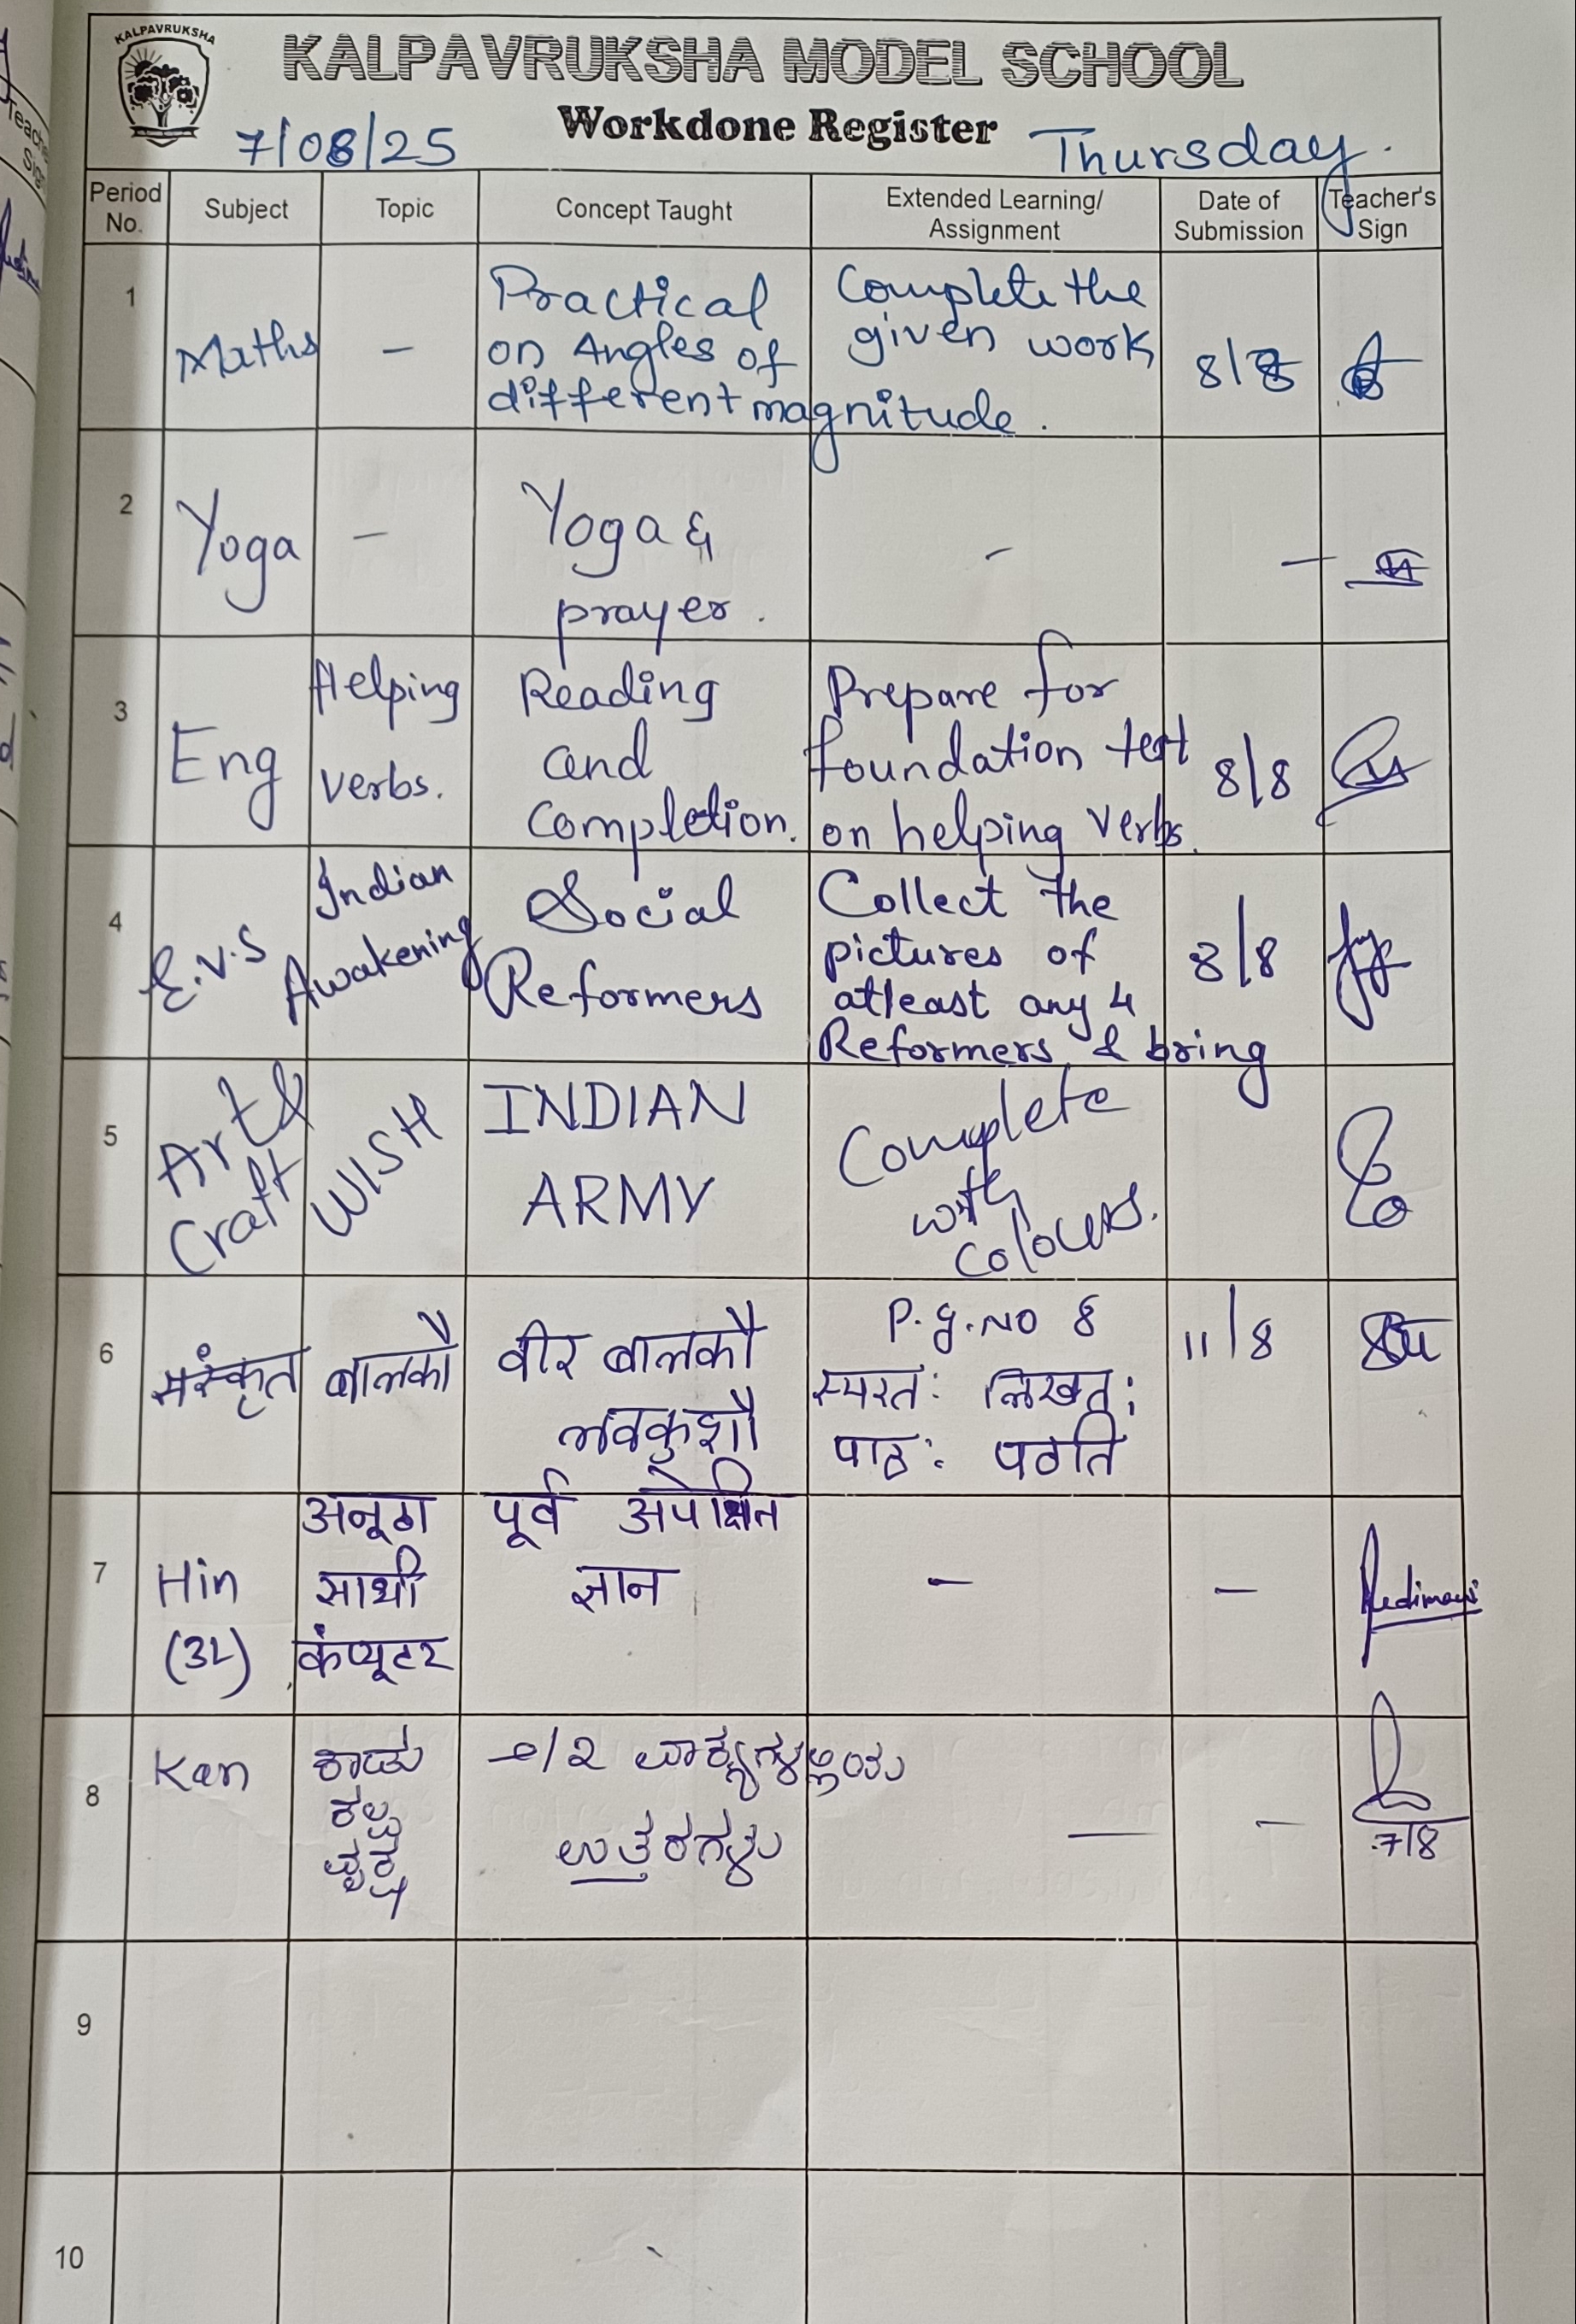 KALPAVRUKSHA
KALPAVRUKSHA MODEL SCHOOL
Workdone Register
7/08/25 Thursday.
Period No. Subject Topic Concept Taught Extended Learning/ Assignment Date of Submission Teacher's Sign
1 Maths –
Practical
on Angles of
different magnitude.
Complete the
given work
8/8
2 Yoga –
Yoga &
prayer.
– –
3 Eng
Helping
verbs.
Reading
and
Completion.
Prepare for
foundation test
on helping verbs.
8/8
4 E.V.S
Indian
Awakening
Social
Reformers
Collect the
pictures of
atleast any 4
Reformers & bring
8/8
5 Art &
Craft
WISH
INDIAN
ARMY
Complete
with
colours.
6 संस्कृत बालकौ
वीर बालकौ
लवकुशौ
P.g.No 8
स्मरत: लिखत:
पाठ: पठति
11/8
7 Hin
(3L)
अनूठा
साथी
कंप्यूटर
पूर्व अपेक्षित
ज्ञान
– –
8 Kan
ಕಾಡು
ಕಲ್ಪ
ವೃಕ್ಷ
೧/೨ ವಾಕ್ಯಗಳಲ್ಲಿಯ
ಉತ್ತರಗಳು
– –
7/8
9
10